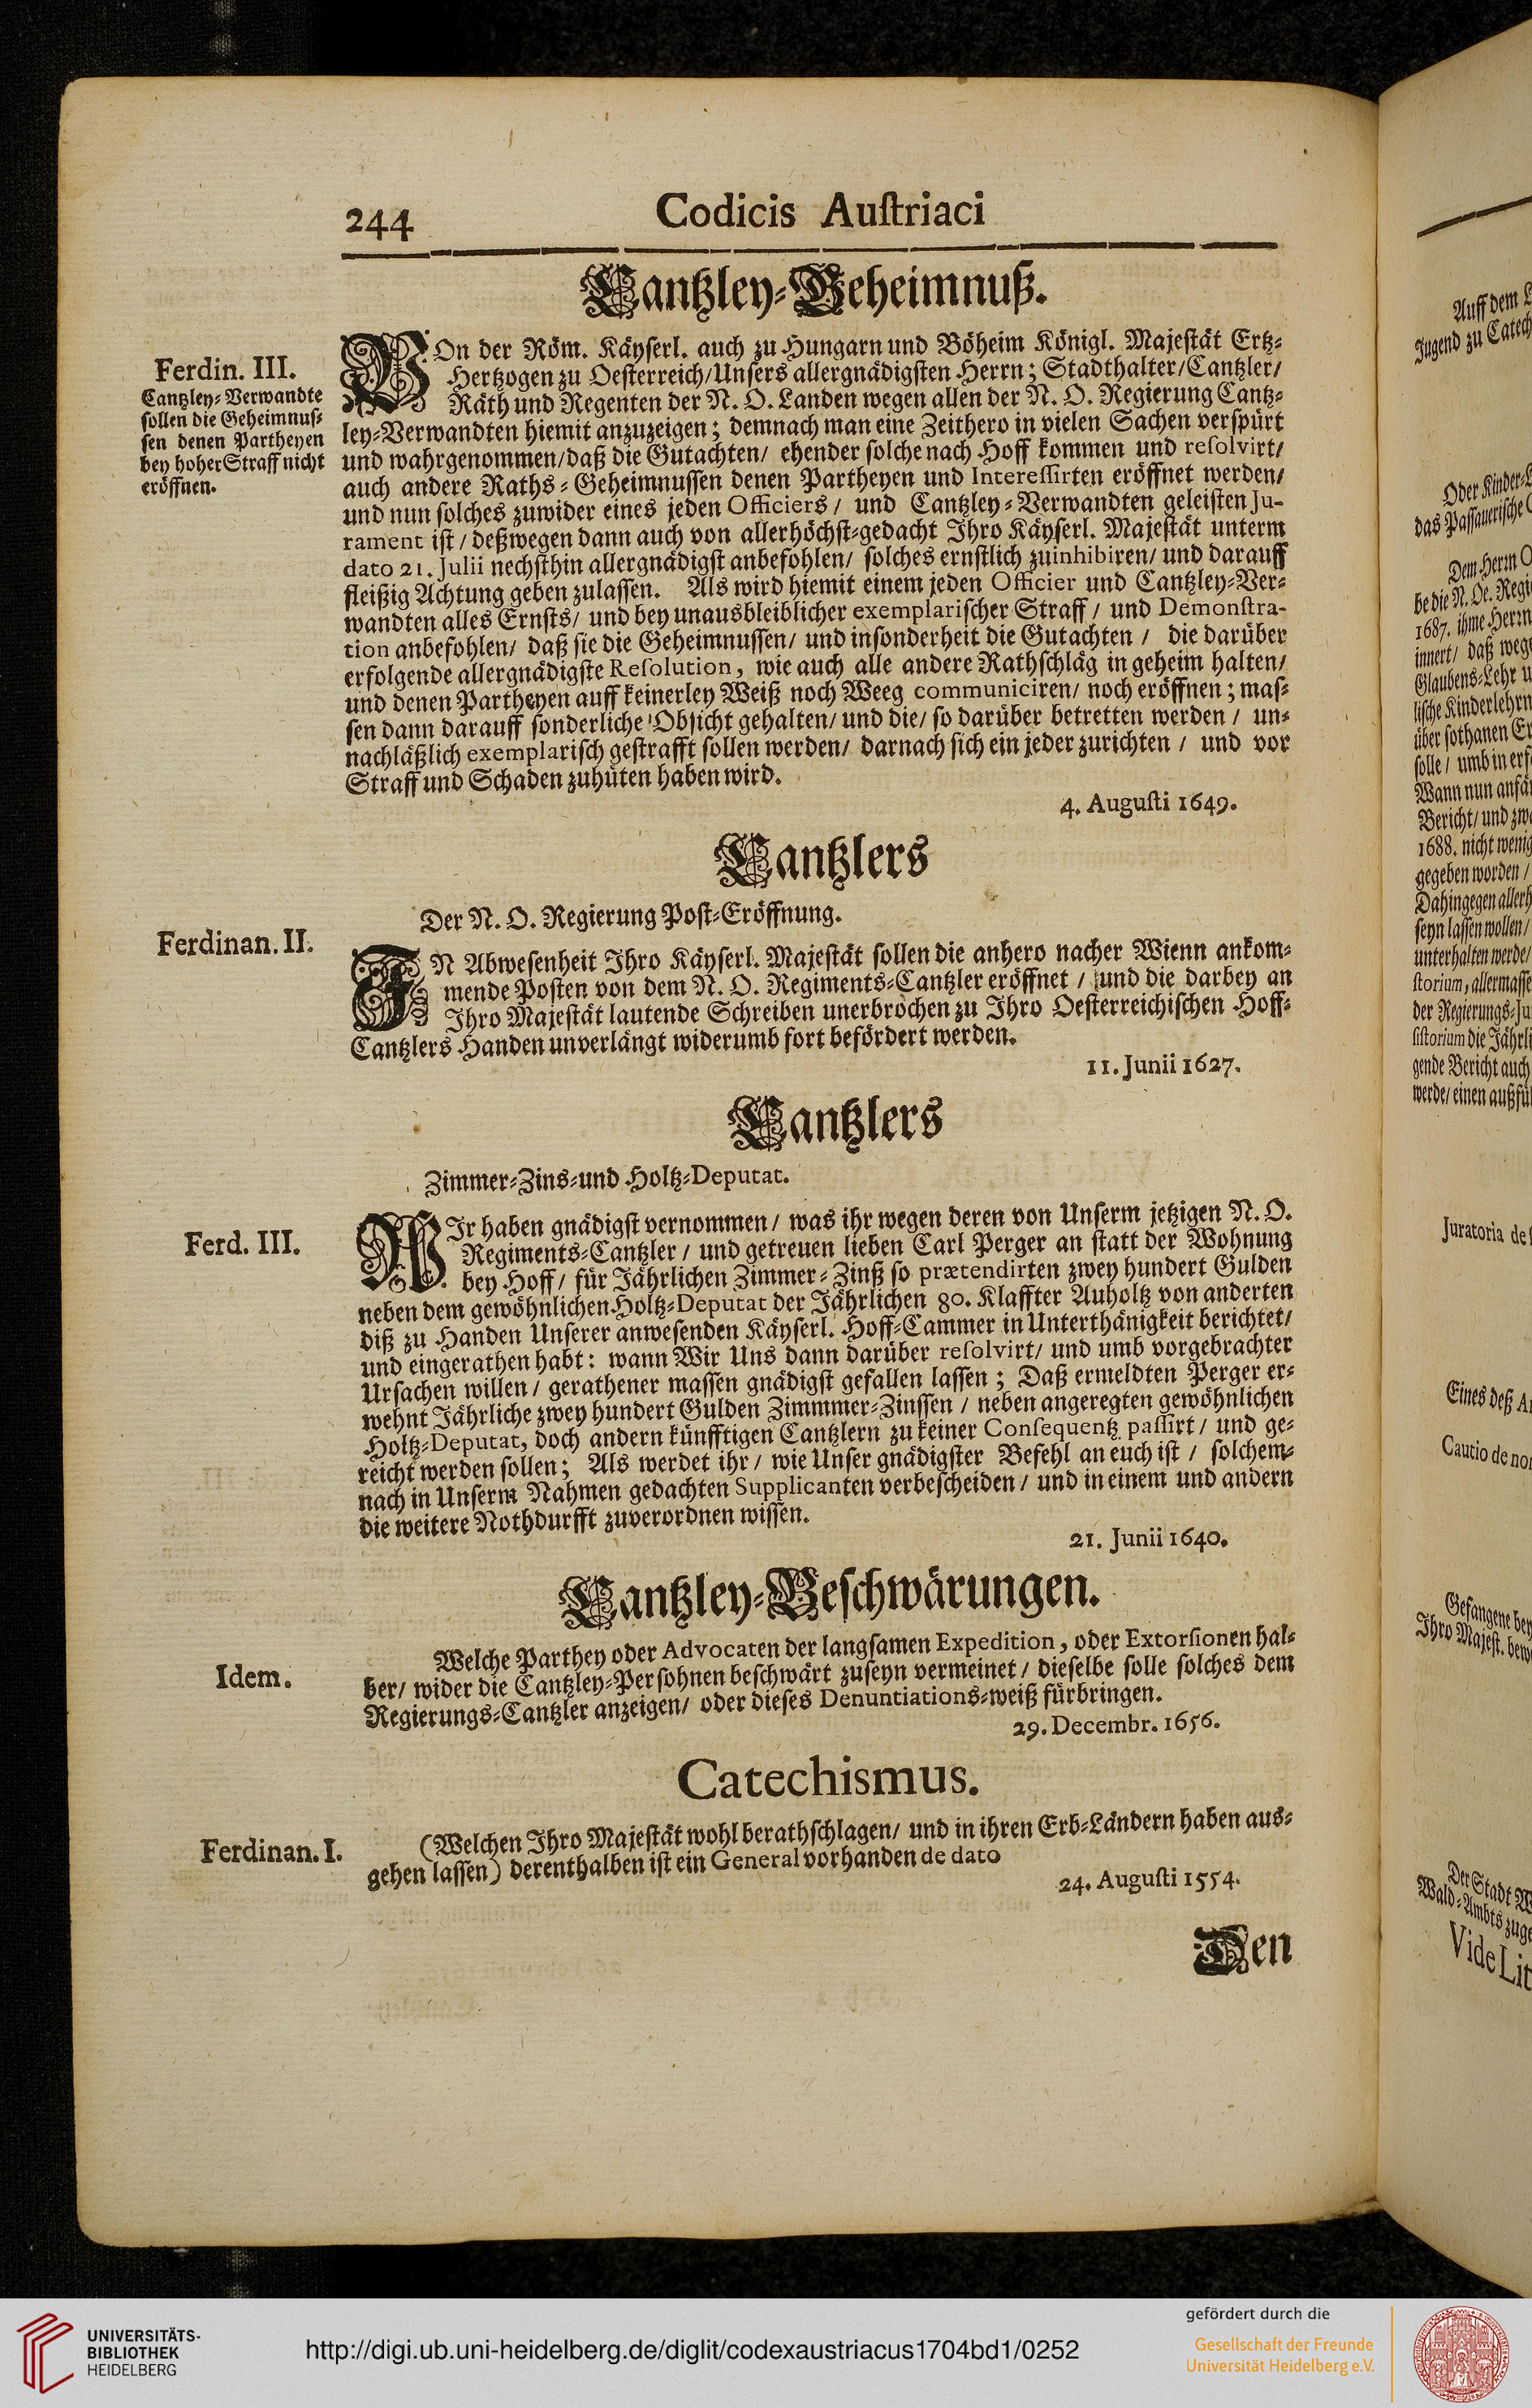 244
Codicis Auſtriaci
Cantzley-Geheimnuß.
Ferdin. III.
Cantzley-Verwandte
ſollen die Geheimnuſ-
ſen denen Partheyen
bey hoher Straff nicht
eröffnen.
VOn der Röm. Käyſerl. auch zu Hungarn und Böheim Königl. Majeſtät Ertz-
Hertzogen zu Oeſterreich/Unſers allergnädigſten Herrn; Stadthalter/Cantzler/
Räth und Regenten der N. O. Landen wegen allen der N. O. Regierung Cantz-
ley-Verwandten hiemit anzuzeigen; demnach man eine Zeithero in vielen Sachen verſpürt
und wahrgenommen/daß die Gutachten/ ehender ſolche nach Hoff kommen und reſolvirt/
auch andere Raths-Geheimnuſſen denen Partheyen und Intereſſirten eröffnet werden/
und nun ſolches zuwider eines jeden Officiers/ und Cantzley-Verwandten geleiſten Ju-
rament iſt/ deßwegen dann auch von allerhöchſt-gedacht Ihro Käyſerl. Majeſtät unterm
dato 21. Julii nechſthin allergnädigſt anbefohlen/ ſolches ernſtlich zuinhibiren/ und darauff
fleißig Achtung geben zulaſſen. Als wird hiemit einem jeden Officier und Cantzley-Ver-
wandten alles Ernſts/ und bey unausbleiblicher exemplariſcher Straff/ und Demonſtra-
tion anbefohlen/ daß ſie die Geheimnuſſen/ und inſonderheit die Gutachten/ die darüber
erfolgende allergnädigſte Reſolution, wie auch alle andere Rathſchläg in geheim halten/
und denen Partheyen auff keinerley Weiß noch Weeg communiciren/ noch eröffnen; maſ-
ſen dann darauff ſonderliche Obſicht gehalten/ und die/ ſo darüber betretten werden/ un-
nachläßlich exemplariſch geſtrafft ſollen werden/ darnach ſich ein jeder zurichten/ und vor
Straff und Schaden zuhüten haben wird.
4. Auguſti 1649.
Cantzlers
Der N. O. Regierung Poſt-Eröffnung.
Ferdinan. II.
IN Abweſenheit Ihro Käyſerl. Majeſtät ſollen die anhero nacher Wienn ankom-
mende Poſten von dem N. O. Regiments-Cantzler eröffnet/ und die darbey an
Ihro Majeſtät lautende Schreiben unerbrochen zu Ihro Oeſterreichiſchen Hoff-
Cantzlers Handen unverlängt widerumb fort befördert werden.
11. Junii 1627.
Cantzlers
Zimmer-Zins-und Holtz-Deputat.
Ferd. III.
WIr haben gnädigſt vernommen/ was ihr wegen deren von Unſerm jetzigen N. O.
Regiments-Cantzler/ und getreuen lieben Carl Perger an ſtatt der Wohnung
bey Hoff/ für Jährlichen Zimmer-Zinß ſo prætendirten zwey hundert Gulden
neben dem gewöhnlichen Holtz-Deputat der Jährlichen 80. Klaffter Auholtz von anderten
diß zu Handen Unſerer anweſenden Käyſerl. Hoff-Cammer in Unterthänigkeit berichtet/
und eingerathen habt: wann Wir Uns dann darüber reſolvirt/ und umb vorgebrachter
Urſachen willen/ gerathener maſſen gnädigſt gefallen laſſen; Daß ermeldten Perger er-
wehnt Jährliche zwey hundert Gulden Zimmmer-Zinſſen/ neben angeregten gewöhnlichen
Holtz-Deputat, doch andern künfftigen Cantzlern zu keiner Conſequentz paſſirt/ und ge-
reicht werden ſollen; Als werdet ihr/ wie Unſer gnädigſter Befehl an euch iſt/ ſolchem-
nach in Unſerm Nahmen gedachten Supplicanten verbeſcheiden/ und in einem und andern
die weitere Nothdurfft zuverordnen wiſſen.
21. Junii 1640.
Cantzley-Beſchwärungen.
Idem.
Welche Parthey oder Advocaten der langſamen Expedition, oder Extorſionen hal-
ber/ wider die Cantzley-Perſohnen beſchwärt zuſeyn vermeinet/ dieſelbe ſolle ſolches dem
Regierungs-Cantzler anzeigen/ oder dieſes Denuntiations-weiß fürbringen.
29. Decembr. 1656.
Catechismus.
Ferdinan. I.
(Welchen Ihro Majeſtät wohl berathſchlagen/ und in ihren Erb-Ländern haben aus-
gehen laſſen) derenthalben iſt ein General vorhanden de dato
24. Auguſti 1554.
Den
Auff dem
Jugend zu Catech
Oder Kinder-
das Paſſaueriſche
Dem Herrn
be die N. Oe. Regi
1687. ihme Herrn
innert/ daß weg
Glaubens-Lehr u
liſche Kinderlehrn
über ſothanen Er
ſolle/ umb in erſ
Wann nun anfä
Bericht/ und zwa
1688. nicht wenig
gegeben worden/
Dahingegen allerh
ſeyn laſſen wollen/
unterhalten werde/
ſtorium, allermaſſe
der Regierungs-Ju
ſiſtorium die Jährli
gende Bericht auch
werde/ einen außfü
Juratoria de
Eines deß A
Cautio de no
Gefangene bey
Ihro Majeſt. bew
Der Stadt W
Wald-Ambts zuge
Vide Lit
UNIVERSITÄTS-
BIBLIOTHEK
HEIDELBERG
http://digi.ub.uni-heidelberg.de/diglit/codexaustriacus1704bd1/0252
gefördert durch die
Gesellschaft der Freunde
Universität Heidelberg e.V.